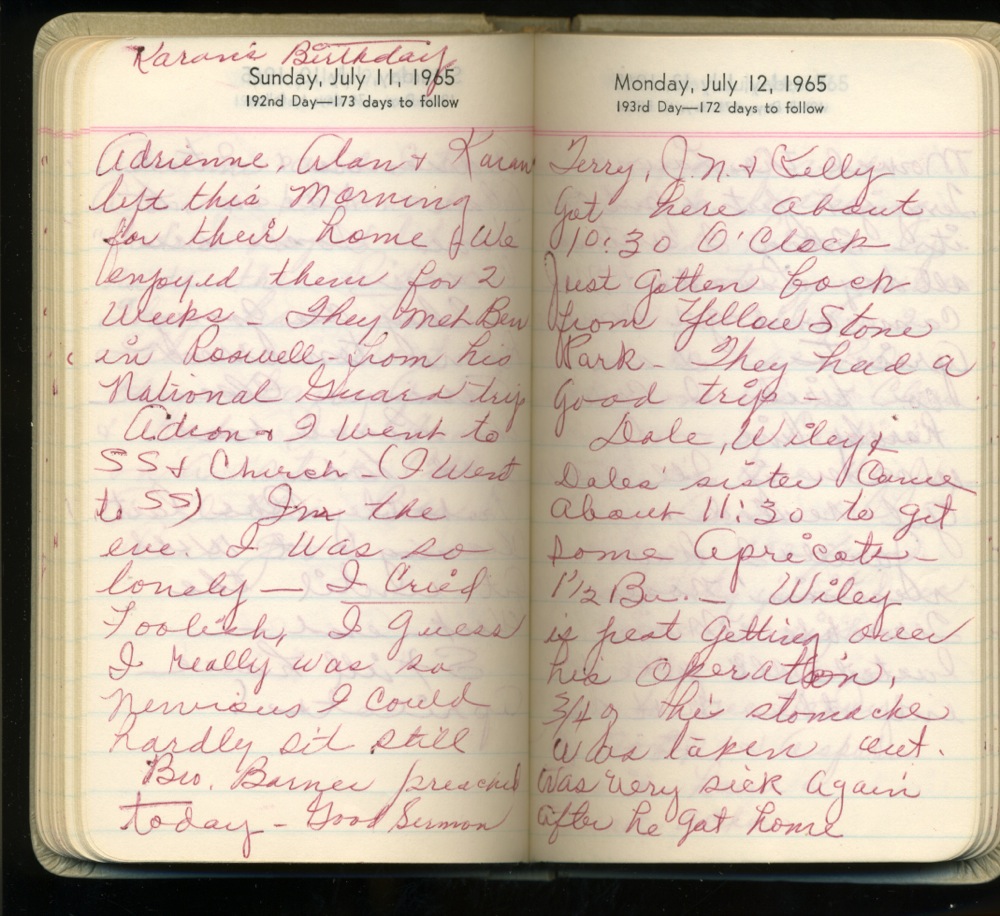 Karan's Birthday
Sunday, July 11, 1965
192nd Day—173 days to follow
Adrienne, Alan & Karan
left this Morning
for their home. We
enjoyed them for 2
weeks - They met Ben
in Roswell - from his
National Guard trip
Adron & I went to
SS & Church - (I went
to SS) In the
eve. I was so
lonely — I cried
Foolish, I guess
I really was so
nervious I could
hardly sit still
Bro. Barnes preached
today - Good Sermon
Monday, July 12, 1965
193rd Day—172 days to follow
Terry, J.N. & Kelly
got here about
10:30 O'Clock
Just gotten back
from Yellow Stone
Park - They had a
good trip -
Dale, Wiley &
Dales sister Came
about 11:30 to get
some Apricots -
1 1/2 Bu. - Wiley
is just getting over
his operation,
3/4 of his stomache
was taken out.
was very sick again
after he got home